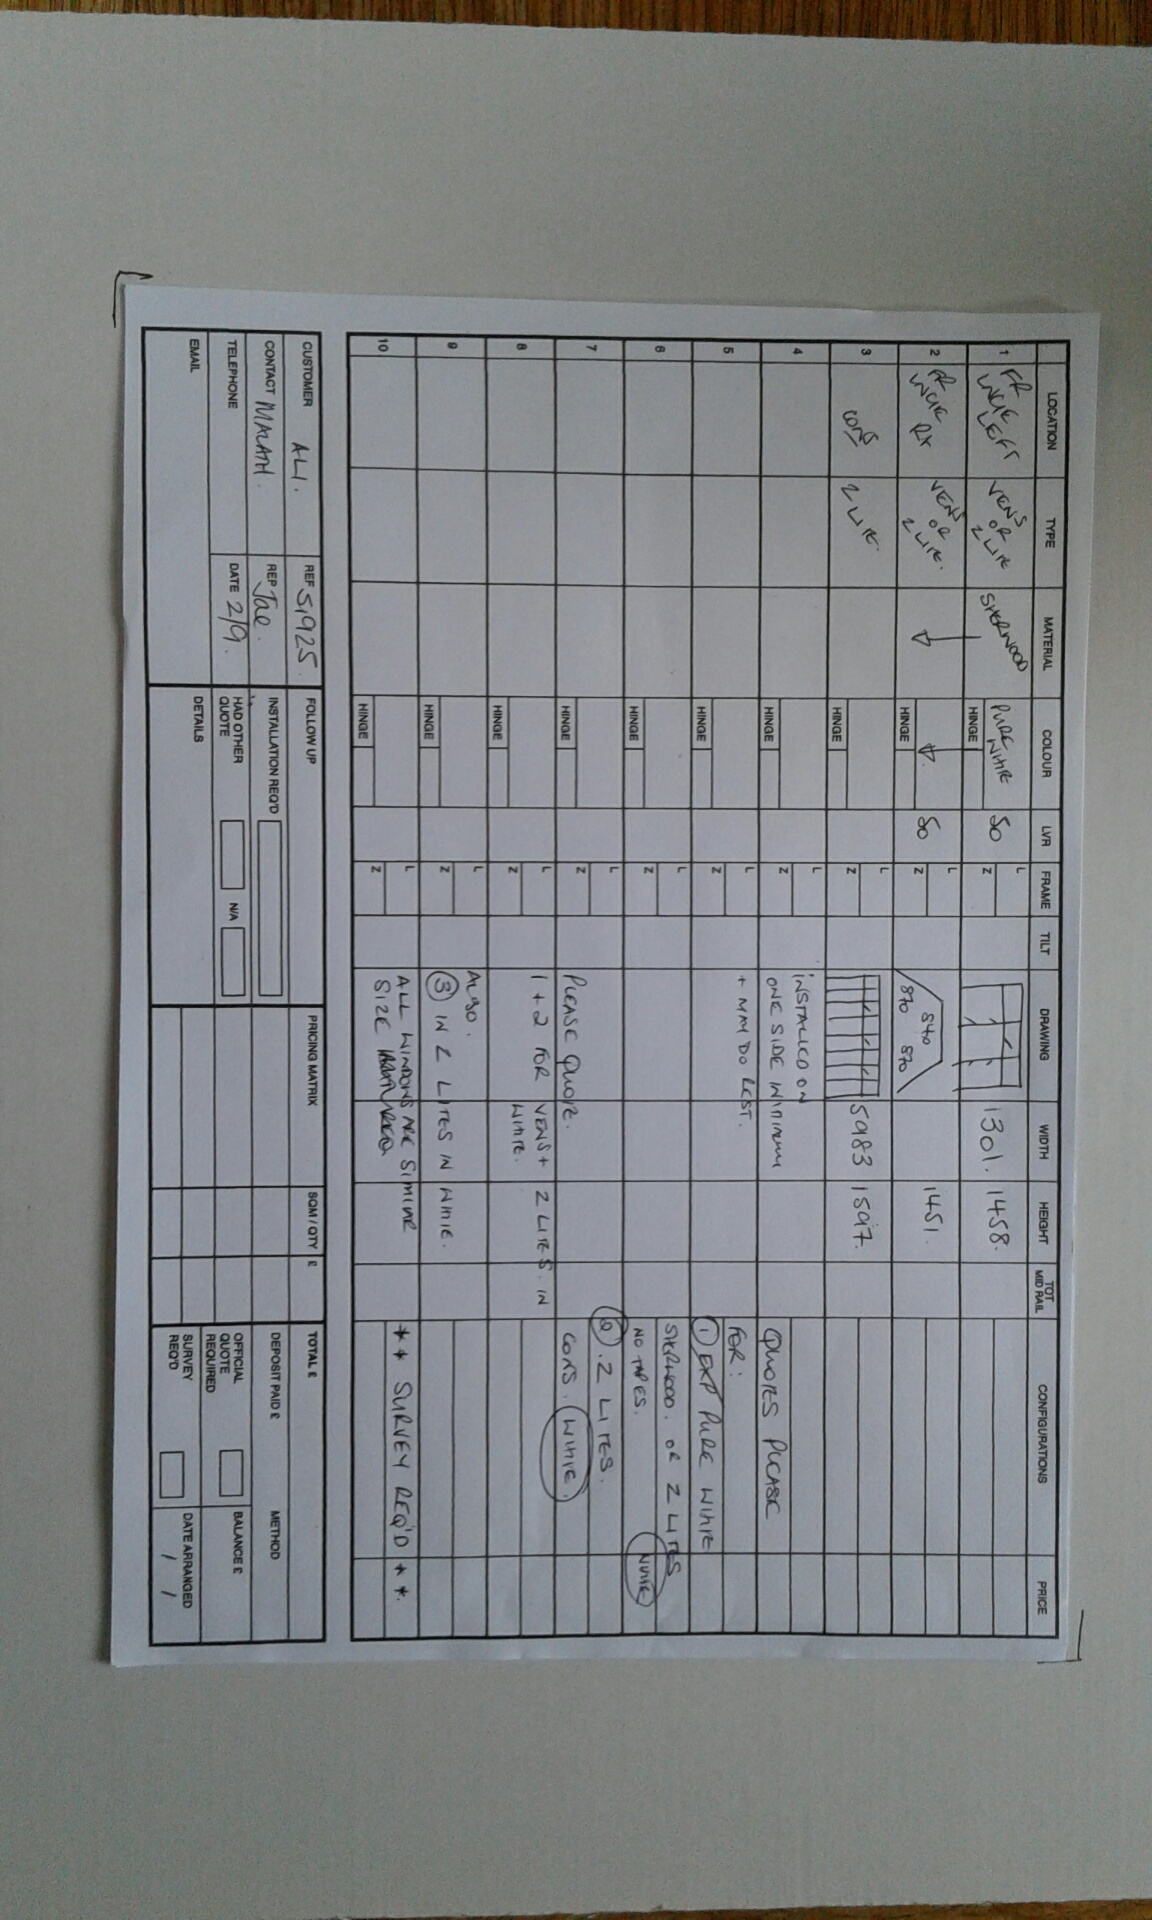 LOCATION TYPE MATERIAL COLOUR LVR FRAME TILT DRAWING WIDTH HEIGHT TOT MID RAIL CONFIGURATIONS PRICE
1 FR LEFT VENS OR 2 LITE SHERWOOD PURE WHITE HINGE 50 L Z 1301. 1458.
2 FR RX VENS OR 2 LITE. HINGE 50 L Z 870 840 870 1451.
3 CONS 2 LITE. HINGE L Z 5983 1597.
4 HINGE L Z INSTALLED ON
ONE SIDE MINIMUM
QUOTES PLEASE
5 HINGE L Z + MAY DO REST.
FOR:
① PURE WHITE
6 HINGE L Z
SHERWOOD. OR 2 LITES
NO TAPES. WHITE
7 HINGE L Z PLEASE QUOTE.
② . 2 LITES.
CONS. WHITE.
8 HINGE L Z 1 + 2 FOR VENS + 2 LITES. IN
WHITE.
9 HINGE L Z ALSO.
③ IN 2 LITES IN WHITE.
10 HINGE L Z ALL WINDOWS ARE SIMILAR
SIZE
** SURVEY REQ'D **.
CUSTOMER ALI. REF 51925
CONTACT MALATH. REP Jae.
TELEPHONE DATE 2/9.
EMAIL
FOLLOW UP
INSTALLATION REQ'D
HAD OTHER QUOTE N/A
DETAILS
PRICING MATRIX SQM / QTY £ TOTAL £
DEPOSIT PAID £ METHOD
OFFICIAL QUOTE REQUIRED BALANCE £
SURVEY REQ'D DATE ARRANGED / /